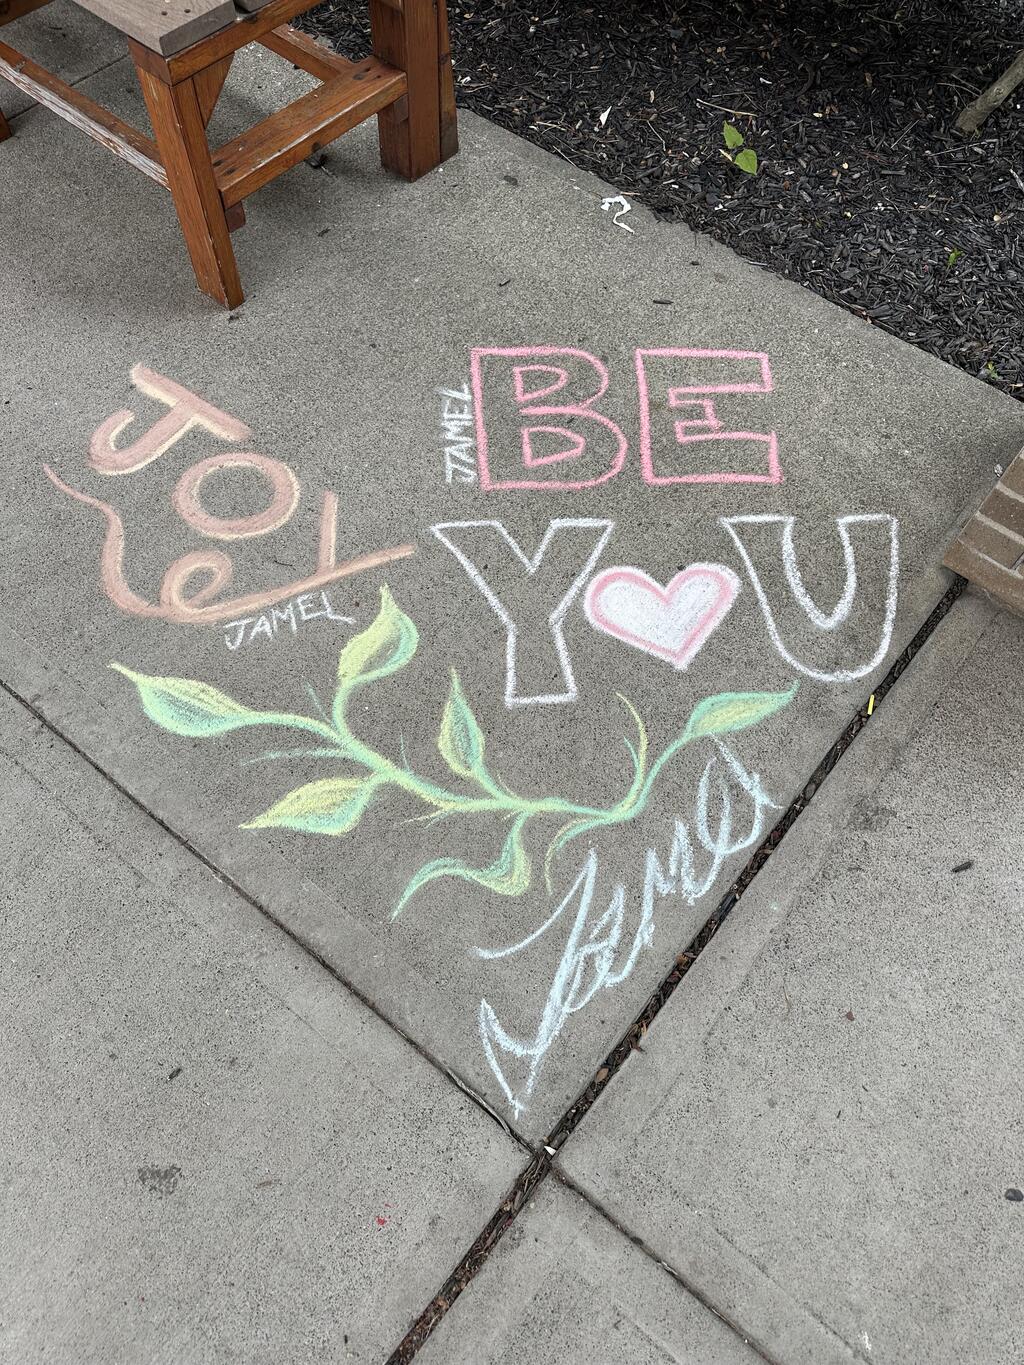 JOY
JAMEL
JAMEL
BE
Y♥U
Jamel